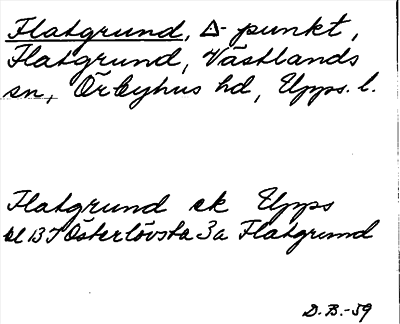 Flatgrund, △-punkt,
Flatgrund, Västlands
sn, Örbyhus hd, Upps. l.
Flatgrund ek Upps
bl 13 I Österlövsta 3a Flatgrund
D.B.-59